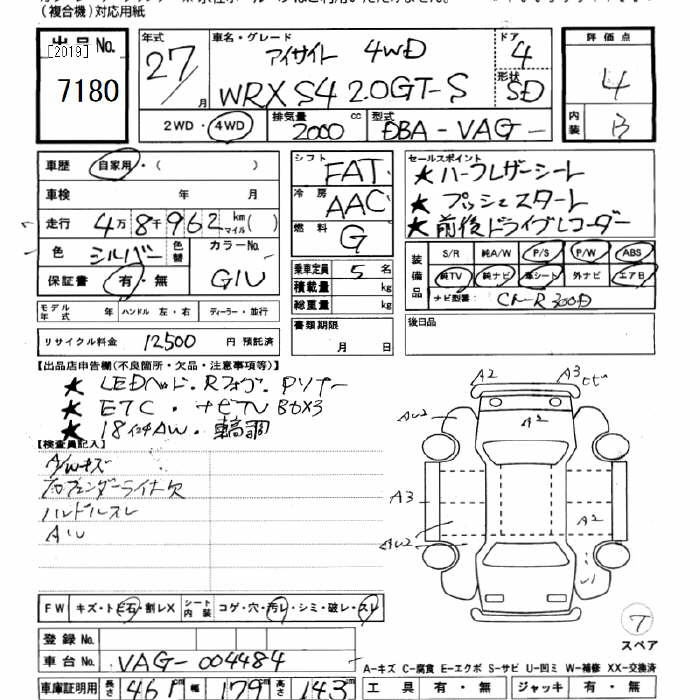 (複合機)対応用紙
出品 No.
[2019]
7180
年式
27/月
車名・グレード
アイサイト 4WD
WRX S4 2.0GT-S
ドア
4
形状
SD
評価点
4
内装
B
2WD・4WD
排気量
2000 cc
型式
DBA-VAG-
車歴 自家用・( )
車検 年 月
走行 4万8千962 km マイル( )
色 シルバー 色替 カラーNo.
保証書 有・無 G1U
モデル年式 年 ハンドル 左・右 ディーラー・並行
リサイクル料金 12500 円 預託済
シフト FAT
冷房 AAC
燃料 G
乗車定員 5 名
積載量 kg
総重量 kg
書類期限
月 日
セールスポイント
★ハーフレザーシート
★プッシュスタート
★前後ドライブレコーダー
装備品
S/R 純A/W P/S P/W ABS
純TV 純ナビ 革シート 外ナビ エア日
ナビ型番:
後日品
【出品店申告欄(不良箇所・欠品・注意事項等)】
★ LEDヘッド・Rフォグ・Pソナー
★ ETC・ナビTV
★ 18インチAW・車高調
【検査員記入】
A/Wキズ
ハンドルスレ
AW
A2 A3
A2
A3
A2
FW キズ・トビ石・割レX シート内装 コゲ・穴・汚レ・シミ・破レ・スレ
登録 No.
車台 No. VAG-004484
車庫証明用 長さ 461 cm 幅 179 cm 高さ 143 cm
T
スペア
A-キズ C-腐食 E-エクボ S-サビ U-凹ミ W-補修 XX-交換済
工具 有・無 ジャッキ 有・無